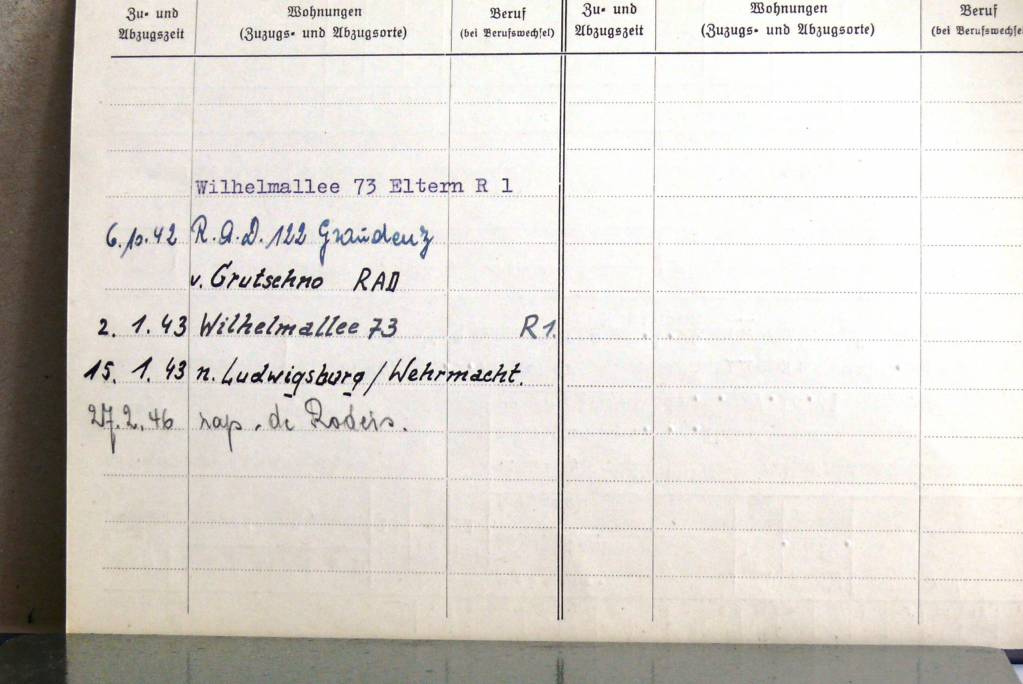 Zu- und Abzugszeit
Wohnungen (Zuzugs- und Abzugsorte)
Beruf (bei Berufswechsel)
Zu- und Abzugszeit
Wohnungen (Zuzugs- und Abzugsorte)
Beruf (bei Berufswechsel)
Wilhelmallee 73 Eltern R 1
6.10.42 R.A.D. 122 Graudenz
v. Grutschno RAD
2. 1. 43 Wilhelmallee 73 R 1.
15. 1. 43 n. Ludwigsburg / Wehrmacht.
27.2.46 zap. do